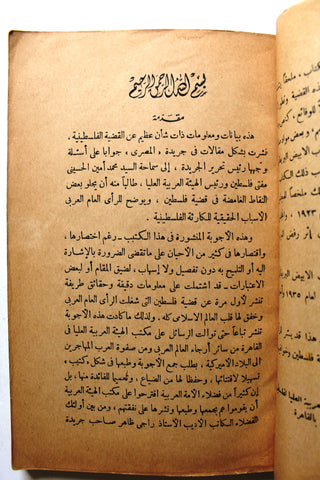 بسم الله الرحمن الرحيم
مقدمة
هذه بيانات ومعلومات ذات شأن عظيم عن القضية الفلسطينية .
نشرت بشكل مقالات فى جريدة « المصرى » جوابا على أسئلة
وجهها رئيس تحرير الجريدة ، إلى سماحة السيد محمد أمين الحسينى
مفتى فلسطين ورئيس الهيئة العربية العليا ، طالباً منه أن يجلو بعض
النقاط الغامضة فى قضية فلسطين ، ويوضح للرأى العام العربى
الأسباب الحقيقية للكارثة الفلسطينية .
وهذه الأجوبة المنشورة فى هذا الكتيب – رغم اختصارها ،
واقتصارها فى كثير من الأحيان على ماتقضى الضرورة بالإشارة
إليه أو التلميح به دون تفصيل ولا إسهاب ، لضيق المقام أو لبعض
الاعتبارات – قد اشتملت على معلومات دقيقة وحقائق طريفة
تنشر لأول مرة عن قضية فلسطين التى شغلت الرأى العام العربى
والعالم الاسلامى كله . ولذلك ما كادت هذه الأجوبة
تنشر تباعاً حتى توالت الرسائل على مكتب الهيئة العربية العليا فى
القاهرة من سائر أرجاء العالم العربى ومن صفوة العرب المهاجرين
إلى البلاد الاميركية ، بطلب جمع الأجوبة وطبعها فى شكل « كتيب »
تسهيلا لاقتنائها ، وحفظا لها من الضياع ، وتعميما للفائدة منها ، بل
إن كثيراً من فضلاء الأمة العربية اقترحوا على مكتب الهيئة العربية
أن يقوموا هم بجمعها وطبعها ونشرها على نفقتهم ، ومن بين أولئك
الفضلاء الكاتب الأديب الأستاذ راجى ظاهر صاحب جريدة
كتاب ، ملحقاً
هذه القضية
للوقائع ،
، وبعض مواد
ب الأبيض البر
لك ملخصاً
١٩٢٣
أثر رفض
الأبيض البر
١٩٣٥
هذا قدر يسير
لسطين ونشر
عربية العليا
بالقاهرة